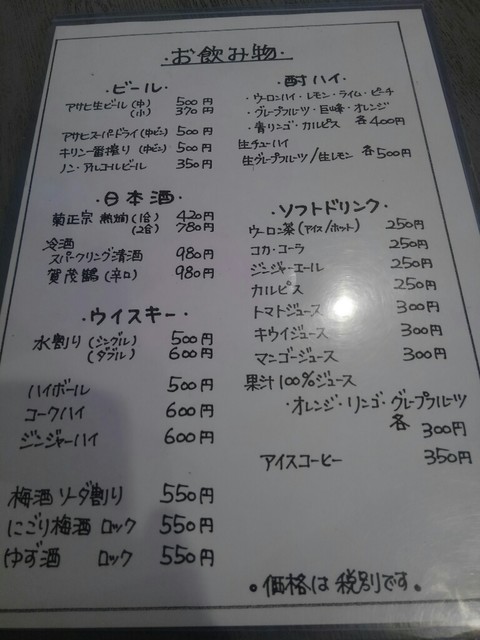 ・お飲み物・
・ビール・
アサヒ生ビール (中) 500円
(小) 370円
アサヒスーパードライ (中ビン) 500円
キリン一番搾り (中ビン) 500円
ノン・アルコールビール 350円
・日本酒・
菊正宗 熱燗 (1合) 420円
(2合) 780円
冷酒
スパークリング清酒 980円
賀茂鶴 (辛口) 980円
・ウイスキー・
水割り (シングル) 500円
(ダブル) 600円
ハイボール 500円
コークハイ 600円
ジンジャーハイ 600円
梅酒 ソーダ割り 550円
にごり梅酒 ロック 550円
ゆず酒 ロック 550円
・酎ハイ・
・ウーロンハイ・レモン・ライム・ピーチ
・グレープフルーツ・巨峰・オレンジ
・青リンゴ・カルピス 各400円
生チューハイ
生グレープフルーツ/生レモン 各500円
・ソフトドリンク・
ウーロン茶 (アイス/ホット) 250円
コカ・コーラ 250円
ジンジャーエール 250円
カルピス 250円
トマトジュース 300円
キウイジュース 300円
マンゴージュース 300円
果汁100%ジュース
・オレンジ・リンゴ・グレープフルーツ
各 300円
アイスコーヒー 350円
。価格は税別です。